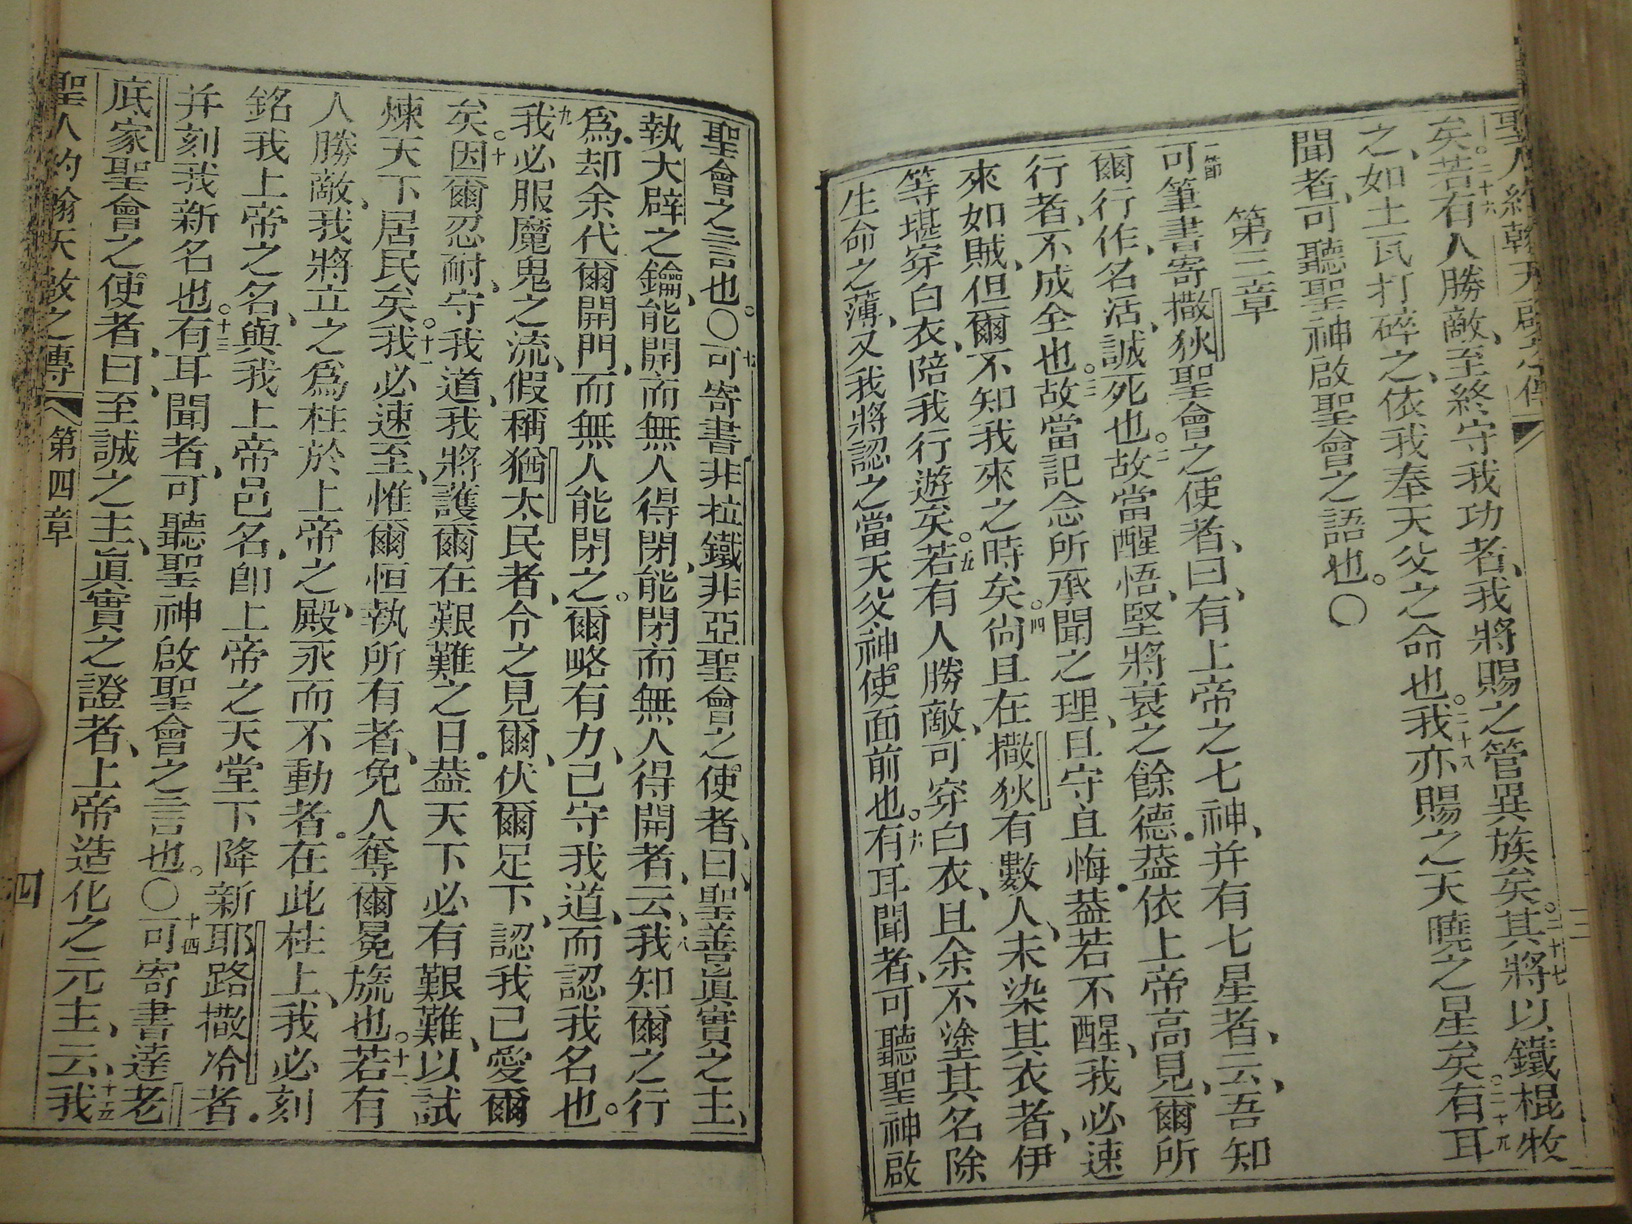 聖人約翰天啟之傳
矣。二十六若有人勝敵、至終守我功者、我將賜之管異族矣。二十七其將以鐵棍牧
之、如土瓦打碎之、依我奉天父之命也。二十八我亦賜之天曉之星矣。二十九有耳
聞者、可聽聖神啟聖會之語也。〇
第三章
一節可筆書寄撒狄聖會之使者、曰、有上帝之七神、并有七星者、云、吾知
爾行作、名活、誠死也。二故當醒悟、堅將衰之餘德。葢依上帝高見、爾所
行者、不成全也。三故當記念所承聞之理、且守且悔。葢若不醒、我必速
來如賊、但爾不知我來之時矣。四尚且在撒狄有數人、未染其衣者、伊
等堪穿白衣、陪我行遊矣。五若有人勝敵、可穿白衣、且余不塗其名除
生命之薄、又我將認之當天父神使面前也。六有耳聞者、可聽聖神啟
聖會之言也。〇七可寄書非拉鐵非亞聖會之使者、曰、聖善眞實之主、
執大辟之鑰、能開而無人得閉、能閉而無人得開者、云、八我知爾之行
爲、却余代爾開門、而無人能閉之。爾略有力、已守我道、而認我名也。
九我必服魔鬼之流、假稱猶太民者、令之見爾、伏爾足下、認我已愛爾
矣。十因爾忍耐、守我道、我將護爾在艱難之日。葢天下必有艱難、以試
煉天下居民矣。十一我必速至、惟爾恒執所有者、免人奪爾冕旒也。十二若有
人勝敵、我將立之爲柱於上帝之殿、永而不動者。在此柱上、我必刻
銘我上帝之名、與我上帝邑名、卽上帝之天堂下降新耶路撒冷者。
并刻我新名也。十三有耳聞者、可聽聖神啟聖會之言也。〇十四可寄書達老
底家聖會之使者、曰、至誠之主、眞實之證者、上帝造化之元主、云、十五我
聖人約翰天啟之傳 第四章 四